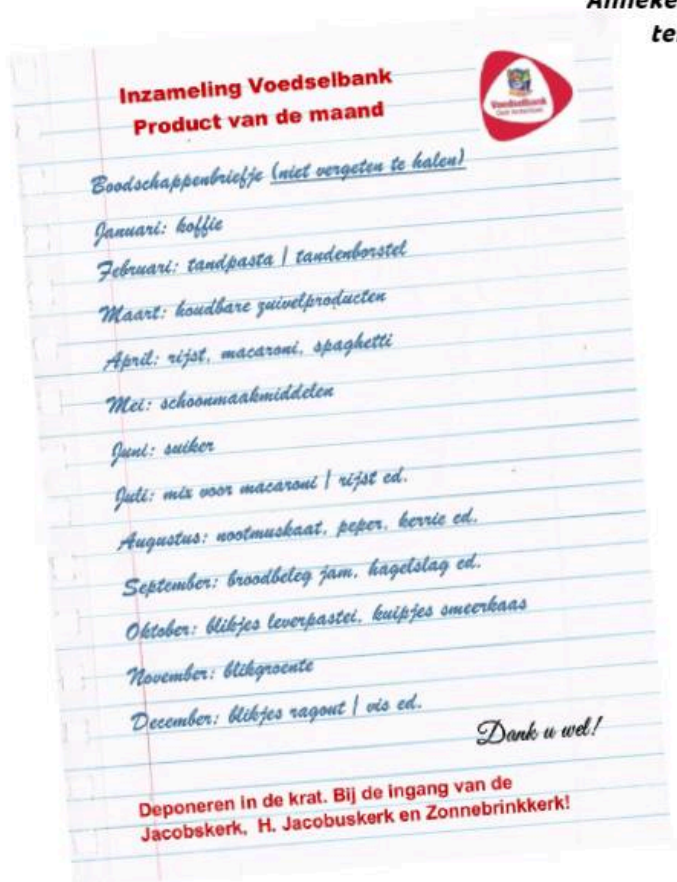 Anneke
Inzameling Voedselbank
Product van de maand
Voedselbank
Boodschappenbriefje (niet vergeten te halen)
Januari: koffie
Februari: tandpasta | tandenborstel
Maart: houdbare zuivelproducten
April: rijst, macaroni, spaghetti
Mei: schoonmaakmiddelen
Juni: suiker
Juli: mix voor macaroni | rijst ed.
Augustus: nootmuskaat, peper, kerrie ed.
September: broodbeleg jam, hagelslag ed.
Oktober: blikjes leverpastei, kuipjes smeerkaas
November: blikgroente
December: blikjes ragout | vis ed.
Dank u wel!
Deponeren in de krat. Bij de ingang van de
Jacobskerk, H. Jacobuskerk en Zonnebrinkkerk!